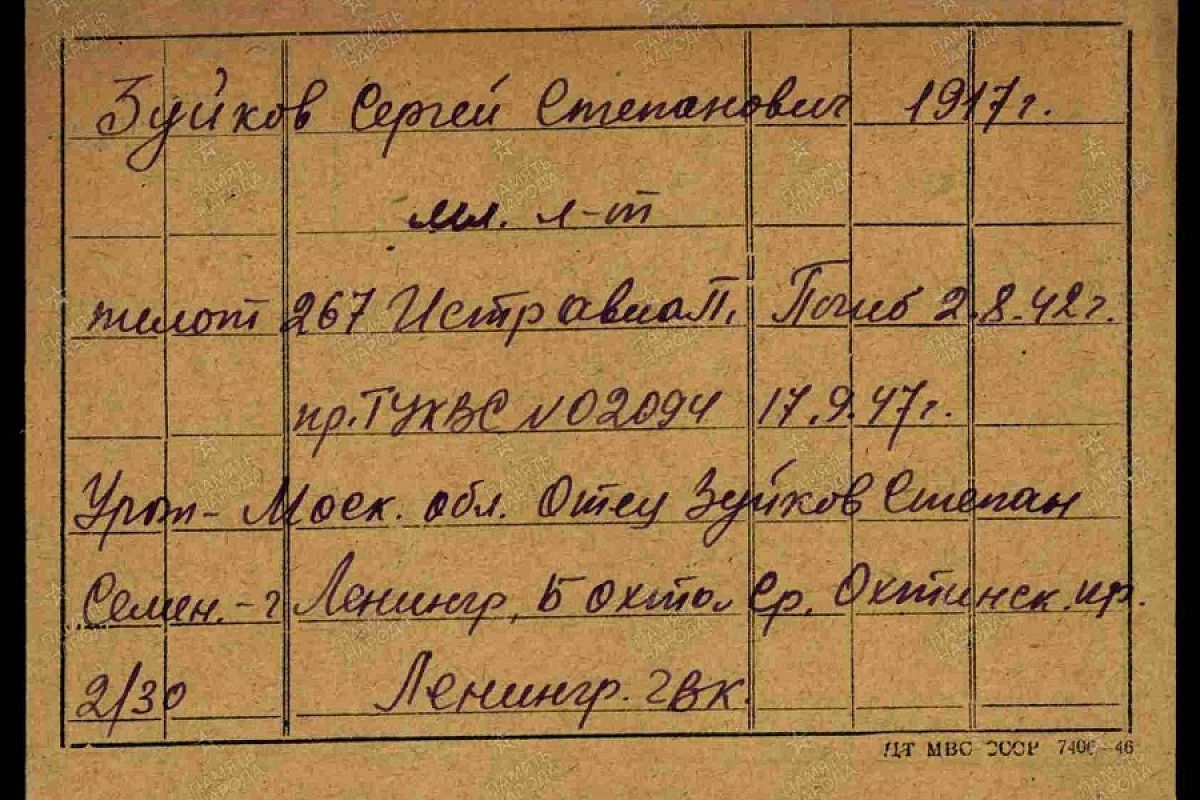 Зуйков Сергей Степанович 1917 г.
мл. л-т
пилот 267 Истр авиаП. Погиб 2.8.42 г.
пр. ГУКВС N 02094 17.9.47 г.
Урож- Моск. обл. Отец Зуйков Степан
Семен. - г Ленингр, Б Охта Ср. Охтинск. пр.
2/30 Ленингр. гвк.
ДТ МВС СССР 7406—46